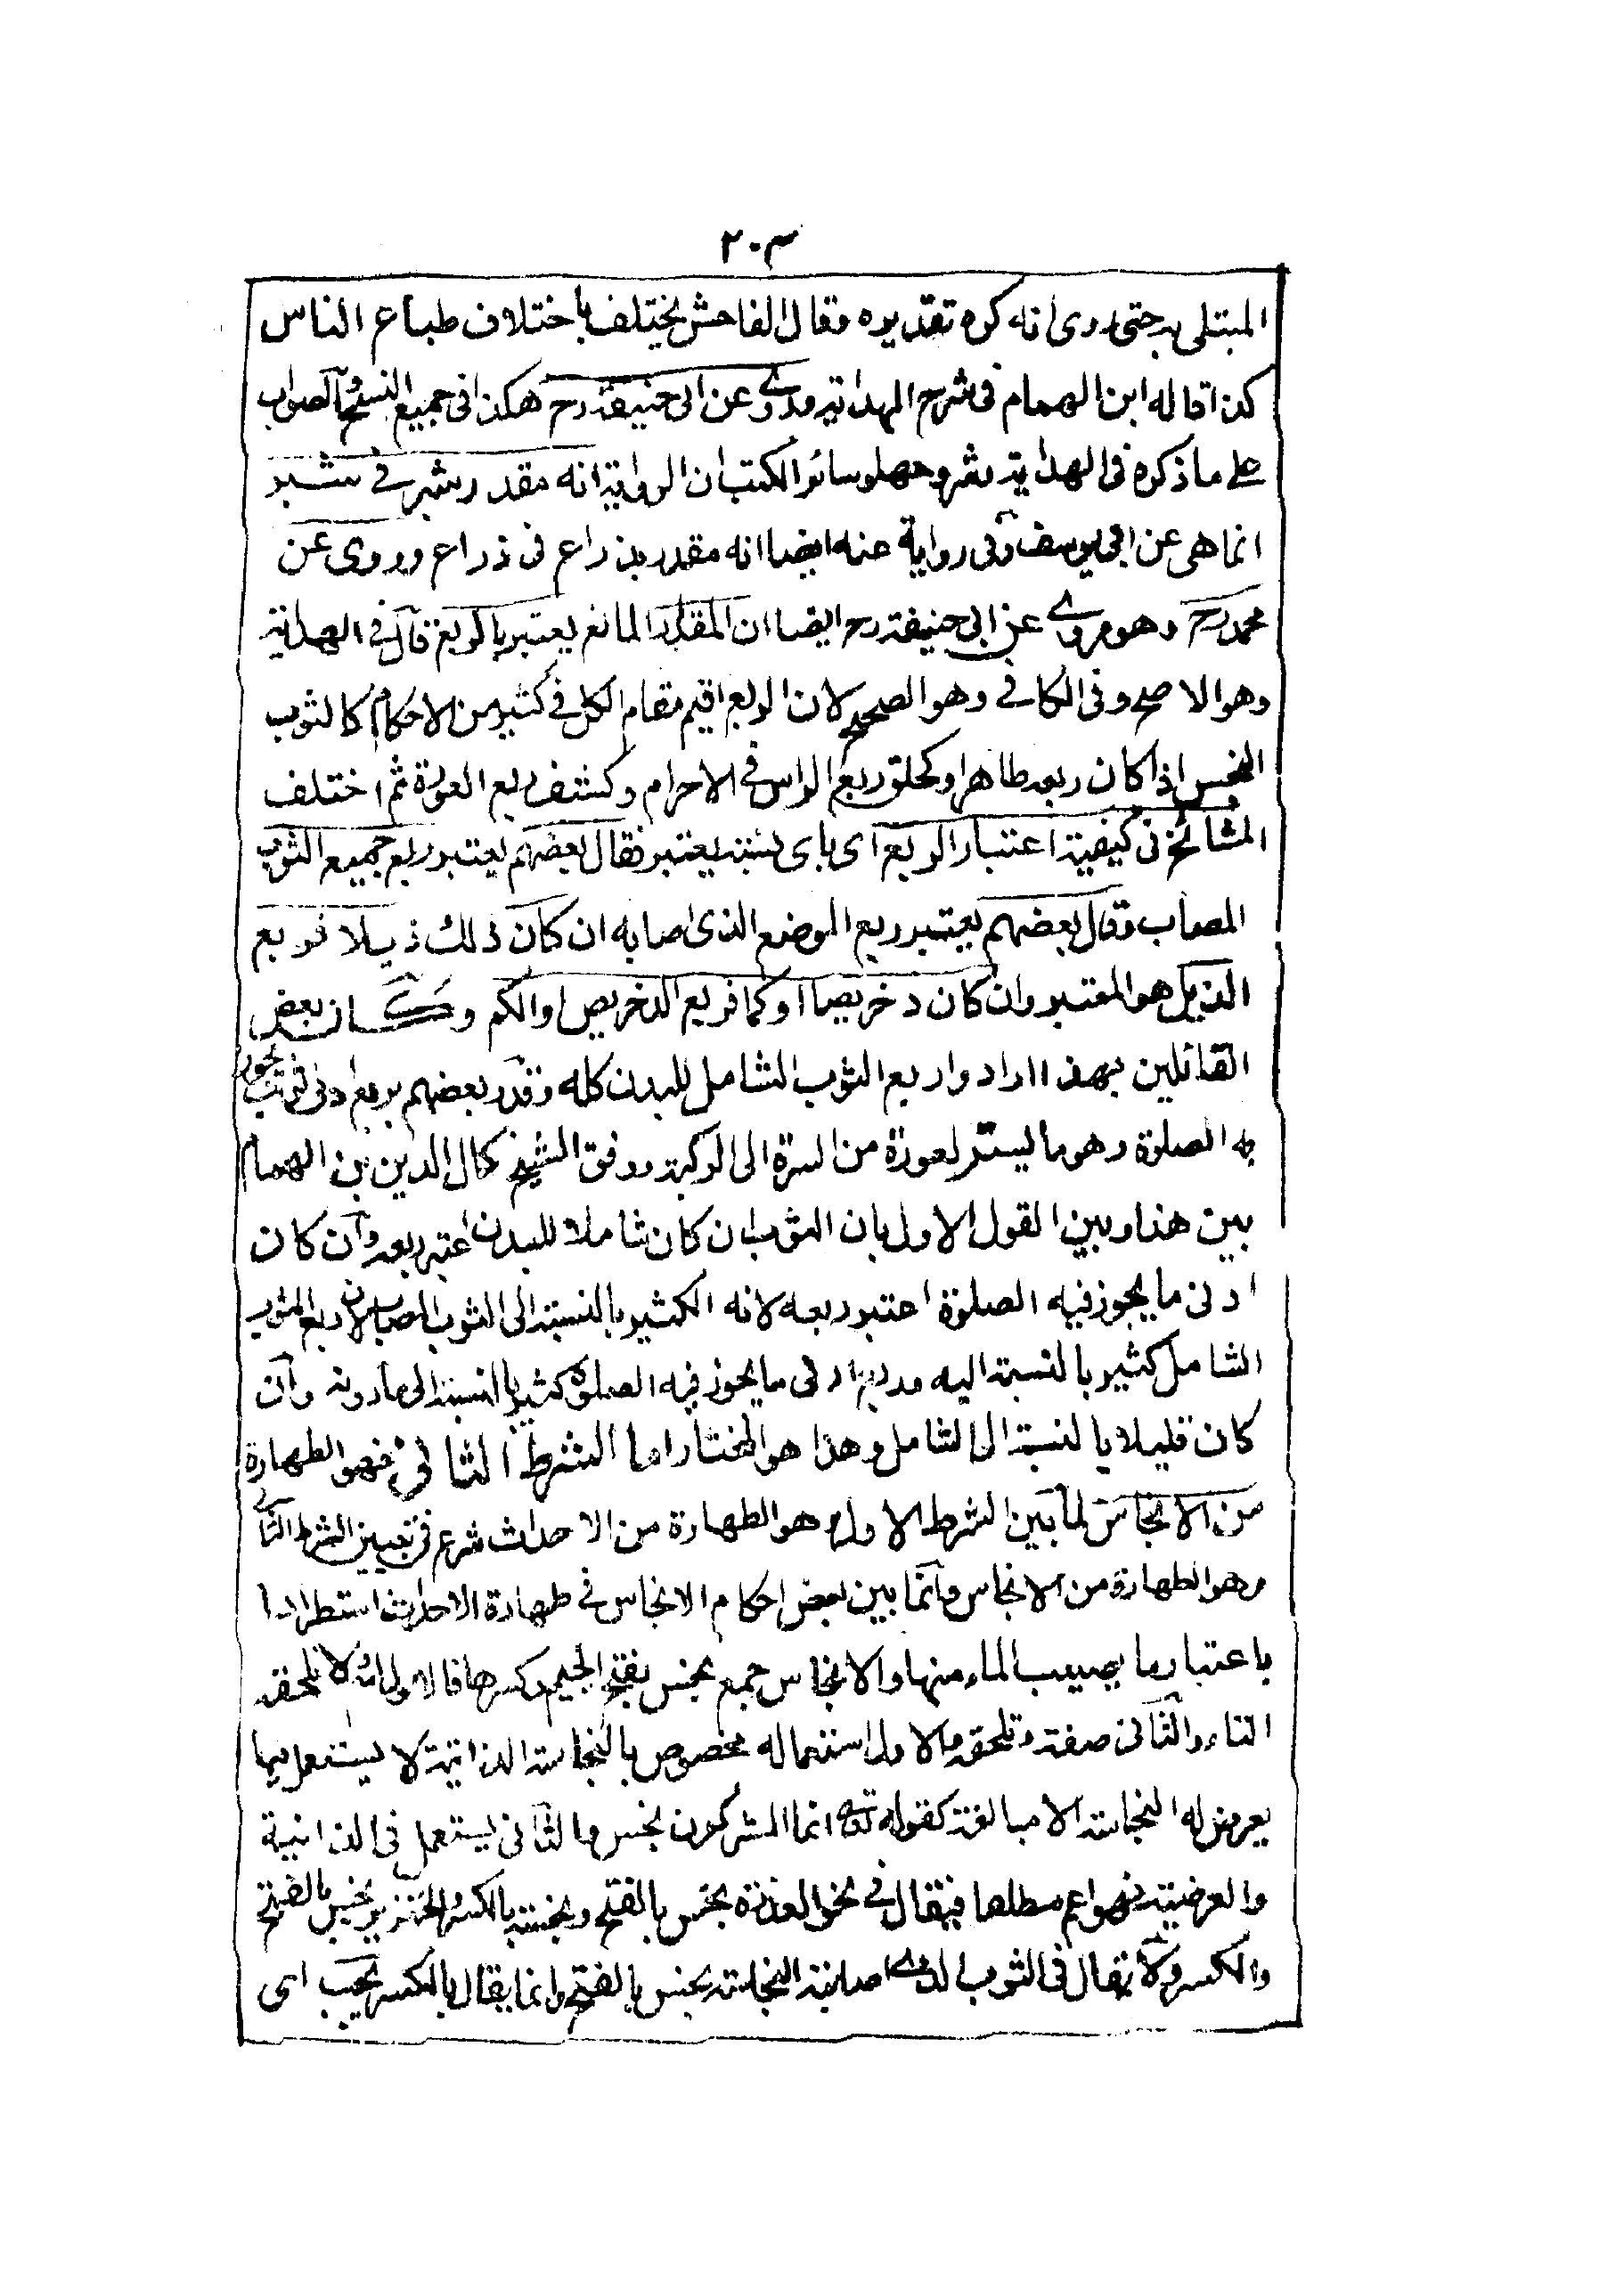 ٢٠٣
المبتلى به حتى روى انه كره تقديره وقال الفاحش يختلف باختلاف طباع الناس
كذا قاله ابن الهمام فى شرح الهداية وروى عن ابى حنيفة رح هكذا فى جميع النسخ والصواب
على ما ذكره فى الهداية بشروحها وسائر الكتب ان الرواية انه مقدر بشبر فى شبر
انما هى عن ابى يوسف وفى رواية عنه ايضا انه مقدر بذراع فى ذراع وروى عن
محمد رح وهو مروى عن ابى حنيفة رح ايضا ان المقدار المانع يعتبر بالربع قال فى الهداية
وهو الاصح وفى الكافى وهو الصحيح لان الربع اقيم مقام الكل فى كثير من الاحكام كالثوب
النجس اذا كان ربعه طاهرا وكحلق ربع الراس فى الاحرام وكشف ربع العورة ثم اختلف
المشائخ فى كيفية اعتبار الربع اى باى نسبة يعتبر فقال بعضهم يعتبر ربع جميع الثوب
المصاب وقال بعضهم يعتبر ربع الموضع الذى اصابه ان كان ذلك ذيلا فربع
الذيل هو المعتبر وان كان دخريصا او كما فربع الدخريص او الكم وكان بعض
القائلين بهذا ارادوا ربع الثوب الشامل للبدن كله وقدر بعضهم بربع ادنى ثوب تجوز
به الصلوة وهو ما يستر العورة من السرة الى الركبة ووفق الشيخ كمال الدين بن الهمام
بين هذا وبين القول الاول بان الثوب ان كان شاملا للبدن اعتبر ربعه وان كان
ادنى ما يجوز فيه الصلوة اعتبر ربعه لانه الكثير بالنسبة الى الثوب المصاب لان ربع الثوب
الشامل كثير بالنسبة اليه وربع ادنى ما يجوز فيه الصلوة كثير بالنسبة الى مادونه وان
كان قليلا بالنسبة الى الشامل وهذا هو المختار اما الشرط الثانى فهو الطهارة
من الانجاس لما بين الشرط الاول وهو الطهارة من الاحداث شرع فى تعيين الشرط الثانى
وهو الطهارة من الانجاس وانما بين بعض احكام الانجاس فى طهارة الاحداث استطرادا
باعتبار ما يصيب الماء منها والانجاس جمع نجس بفتح الجيم وكسرها فالاول لا تلحقه
التاء والثانى صفة وتلحقه والاول استعماله مخصوص بالنجاسة الذاتية لا يستعمل فيما
يعرض له النجاسة الا مبالغة كقوله تعه انما المشركون نجس والثانى يستعمل فى الذاتية
والعرضية فهو اعم مطلقا فيقال فى نحو العذرة نجس بالفتح ونجسة بالكسر والخنزير نجس بالفتح
والكسر ولا يقال فى الثوب الذى اصابته النجاسة نجس بالفتح وانما يقال بالكسر يجب اى